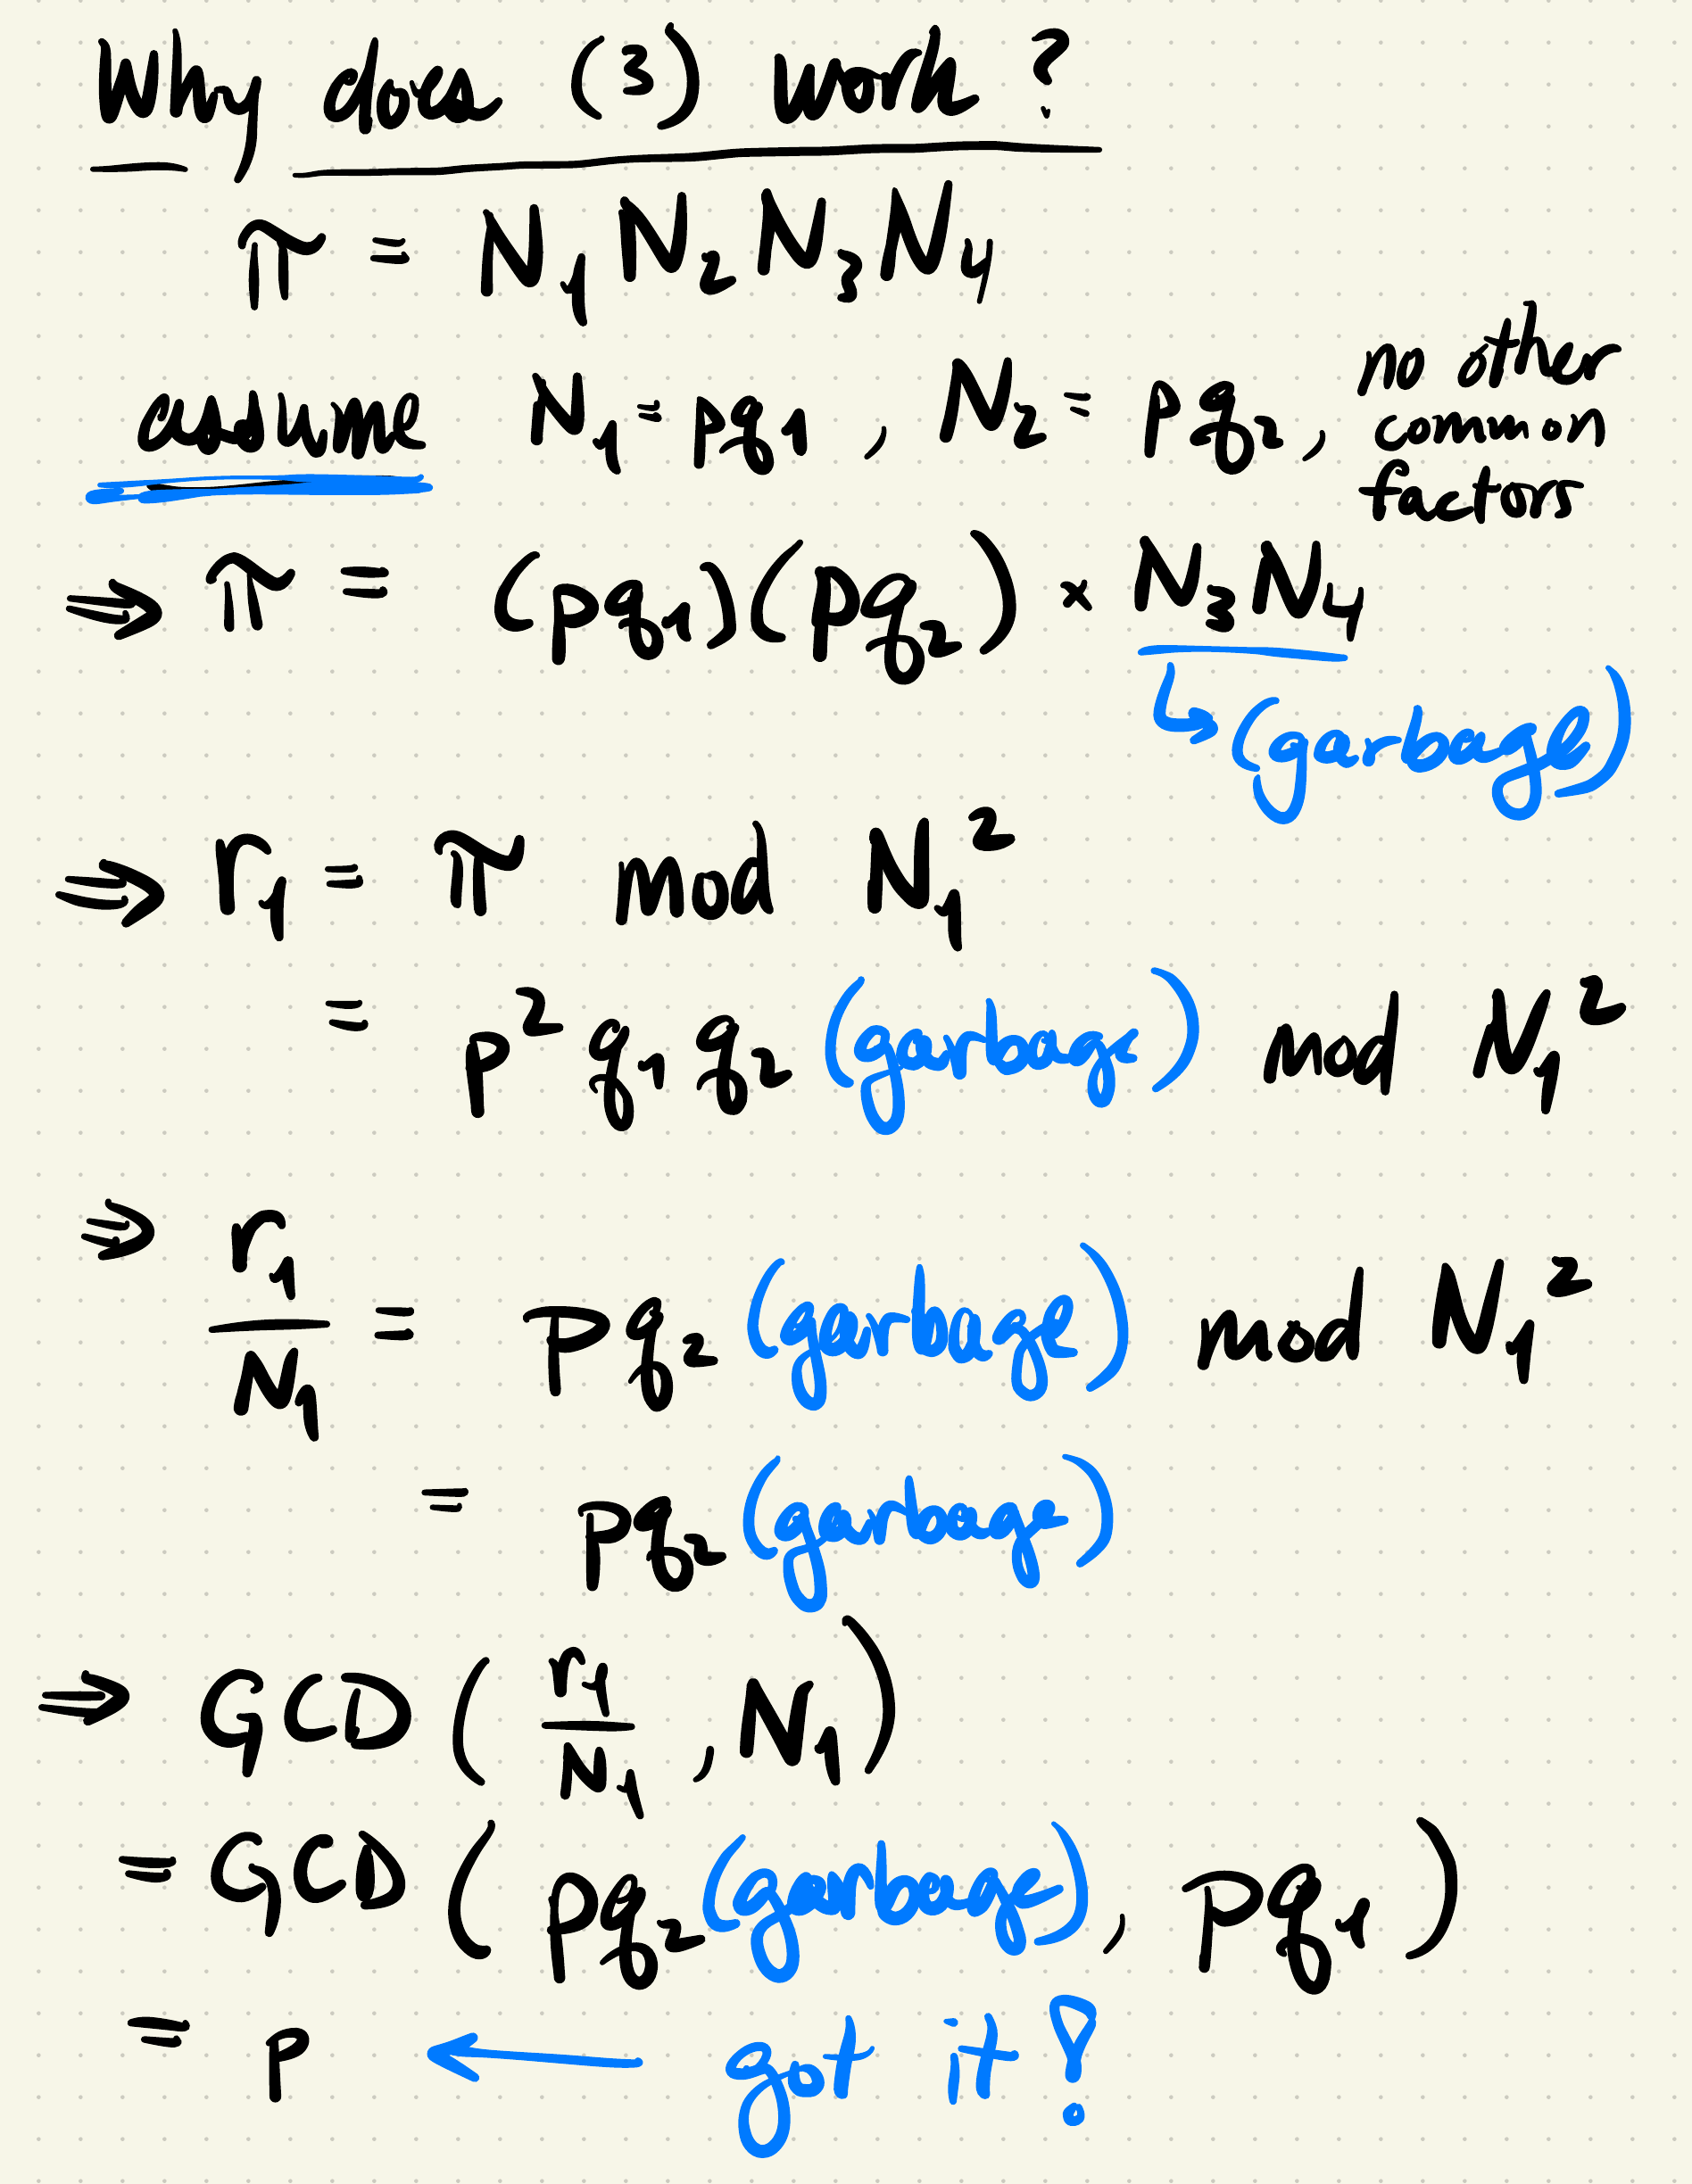 Why does (3) work?
π = N₁N₂N₃N₄
assume N₁ = pq₁ , N₂ = pq₂, no other common factors
⇒ π = (pq₁)(pq₂) × N₃N₄
↳ (garbage)
⇒ r₁ = π mod N₁²
= p² q₁ q₂ (garbage) mod N₁²
⇒ r₁/N₁ = pq₂ (garbage) mod N₁²
= pq₂ (garbage)
⇒ GCD ( r₁/N₁ , N₁ )
= GCD ( pq₂ (garbage), pq₁ )
= p ← got it!